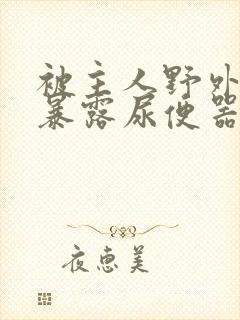 被主人野外
暴露尿便器
夜惠美